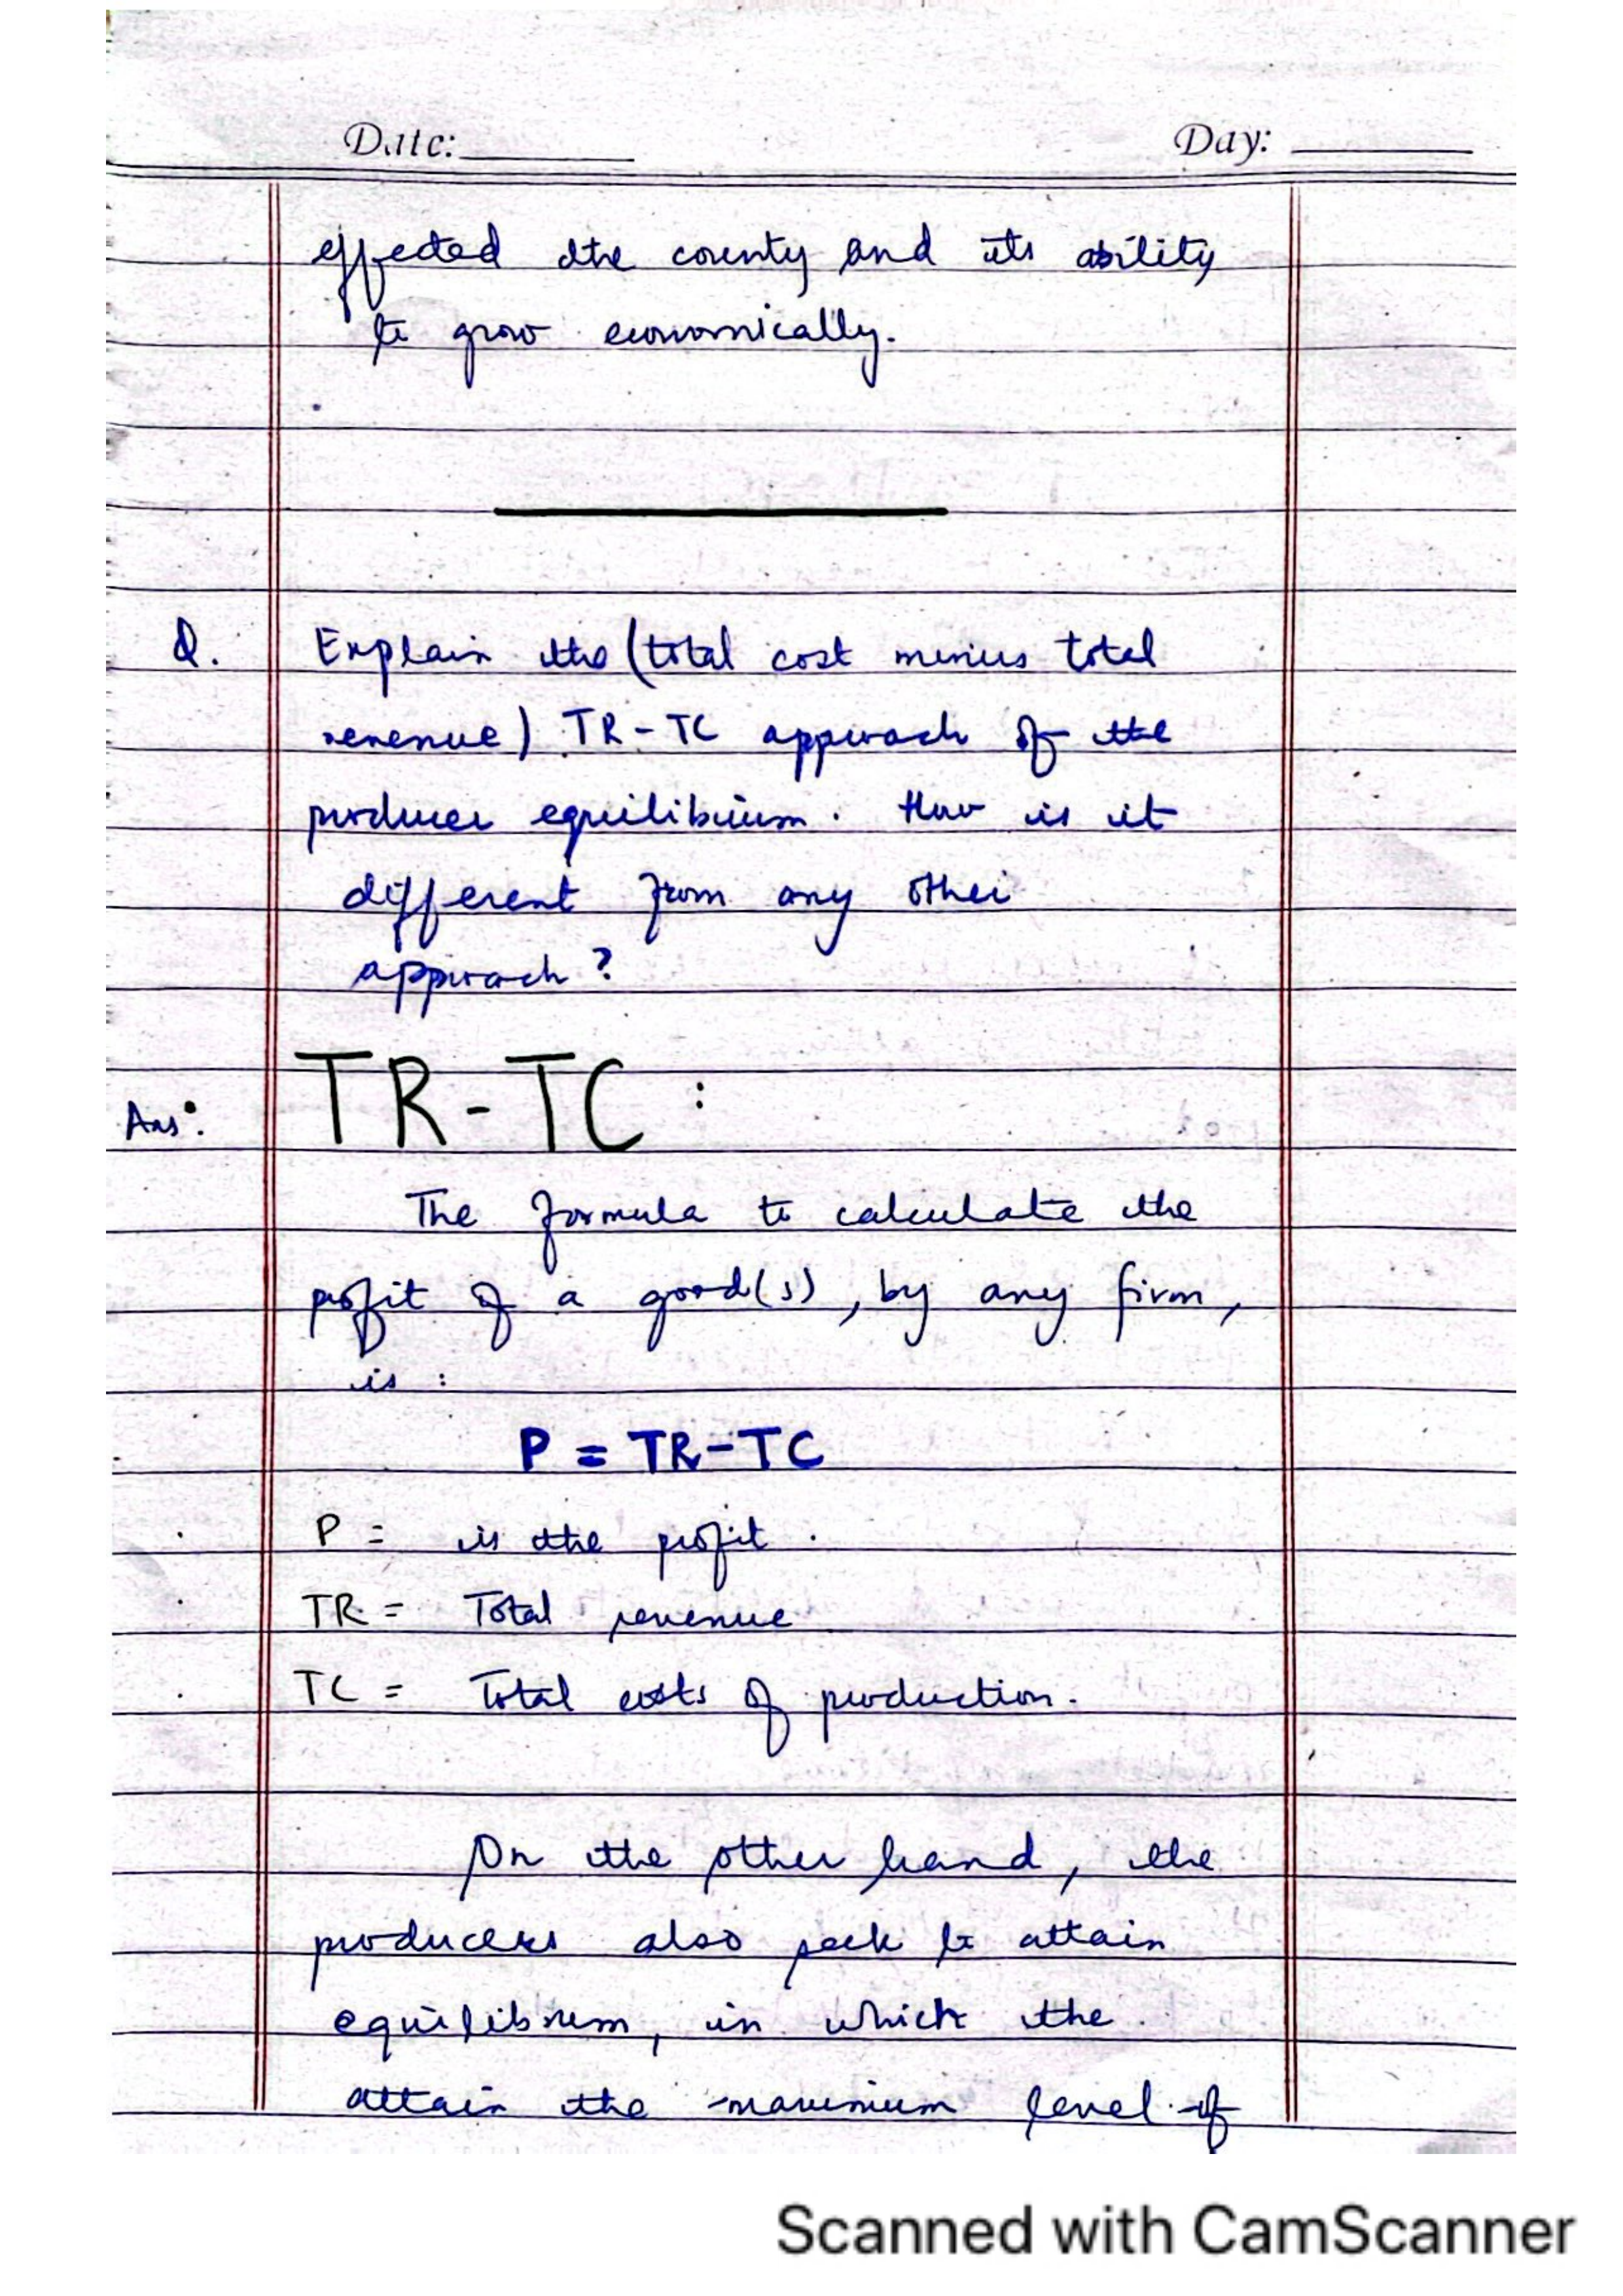 Date: Day:
effected the county and its ability
to grow economically.
Q. Explain the (total cost minus total
revenue) TR-TC approach of the
producer equilibrium. How is it
different from any other
approach?
Ans: TR-TC :
The formula to calculate the
profit of a good(s), by any firm,
is :
P = TR-TC
P = is the profit.
TR = Total revenue
TC = Total costs of production.
On the other hand, the
producers also seek to attain
equilibrium, in which the
attain the maximum level of
Scanned with CamScanner